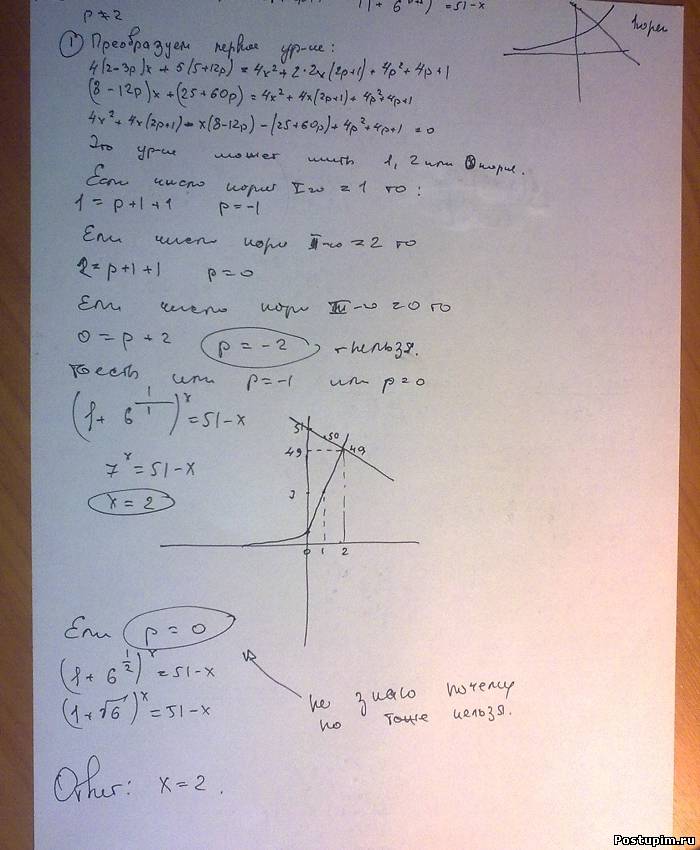 1 + 6 ) = 51-x
p ≠ 2
корень
① Преобразуем первое ур-ие:
4(2-3p)x + 5(5+12p) = 4x² + 2·2x(2p+1) + 4p² + 4p + 1
(8-12p)x + (25+60p) = 4x² + 4x(2p+1) + 4p² + 4p+1
4x² + 4x(2p+1) - x(8-12p) - (25+60p) + 4p² + 4p+1 = 0
Это ур-ие может иметь 1, 2 или 0 корня.
Если число корней I-го = 1 то:
1 = p+1+1 p=-1
Если число корн II-го = 2 то
2 = p+1+1 p=0
Если число корн III-го = 0 то
0 = p + 2 p = -2 - нельзя.
То есть или p=-1 или p=0
(1 + 6^(1/1))^x = 51-x
7^x = 51-x
x = 2
51
50
49
49
0 1 2
Если p = 0
(1 + 6^(1/2))^x = 51-x
(1+√6)^x = 51-x
не знаю почему
но тоже нельзя.
Ответ: x = 2.
Postupim.ru